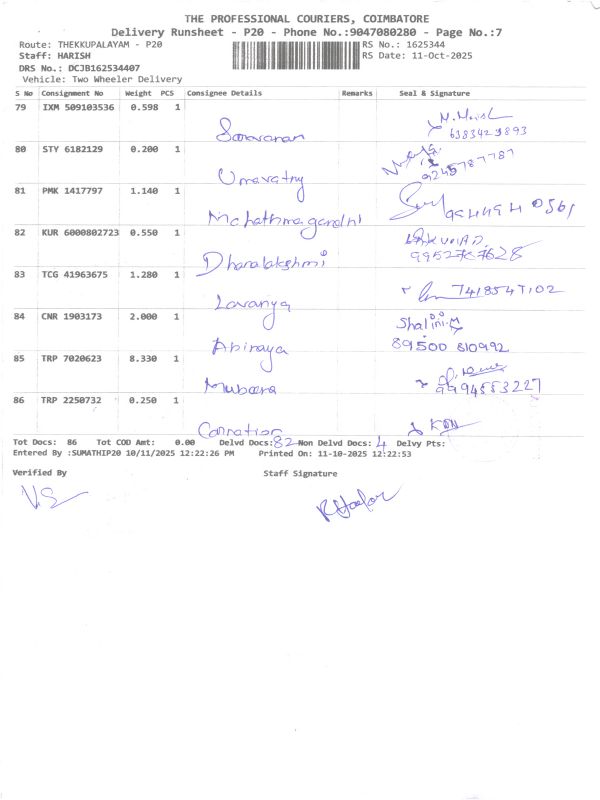 THE PROFESSIONAL COURIERS, COIMBATORE
Delivery Runsheet - P20 - Phone No.:9047080280 - Page No.:7
Route: THEKKUPALAYAM - P20 RS No.: 1625344
Staff: HARISH RS Date: 11-Oct-2025
DRS No.: DCJB162534407
Vehicle: Two Wheeler Delivery
S No Consignment No Weight PCS Consignee Details Remarks Seal & Signature
79 IXM 509103536 0.598 1
Saravanan 6383423893
80 STY 6182129 0.200 1
Umavathy 9245787787
81 PMK 1417797 1.140 1
Mahathmagandhi 944494 0561
82 KUR 6000802723 0.550 1
Dhanalakshmi
83 TCG 41963675 1.280 1
Lavanya 7418547102
84 CNR 1903173 2.000 1 Shalini.M
Abinaya 89500 810992
85 TRP 7020623 8.330 1
Mubeera 9994553227
86 TRP 2250732 0.250 1
Tot Docs: 86 Tot COD Amt: 0.00 Delvd Docs: 82 Non Delvd Docs: 4 Delvy Pts:
Entered By :SUMATHIP20 10/11/2025 12:22:26 PM Printed On: 11-10-2025 12:22:53
Verified By Staff Signature